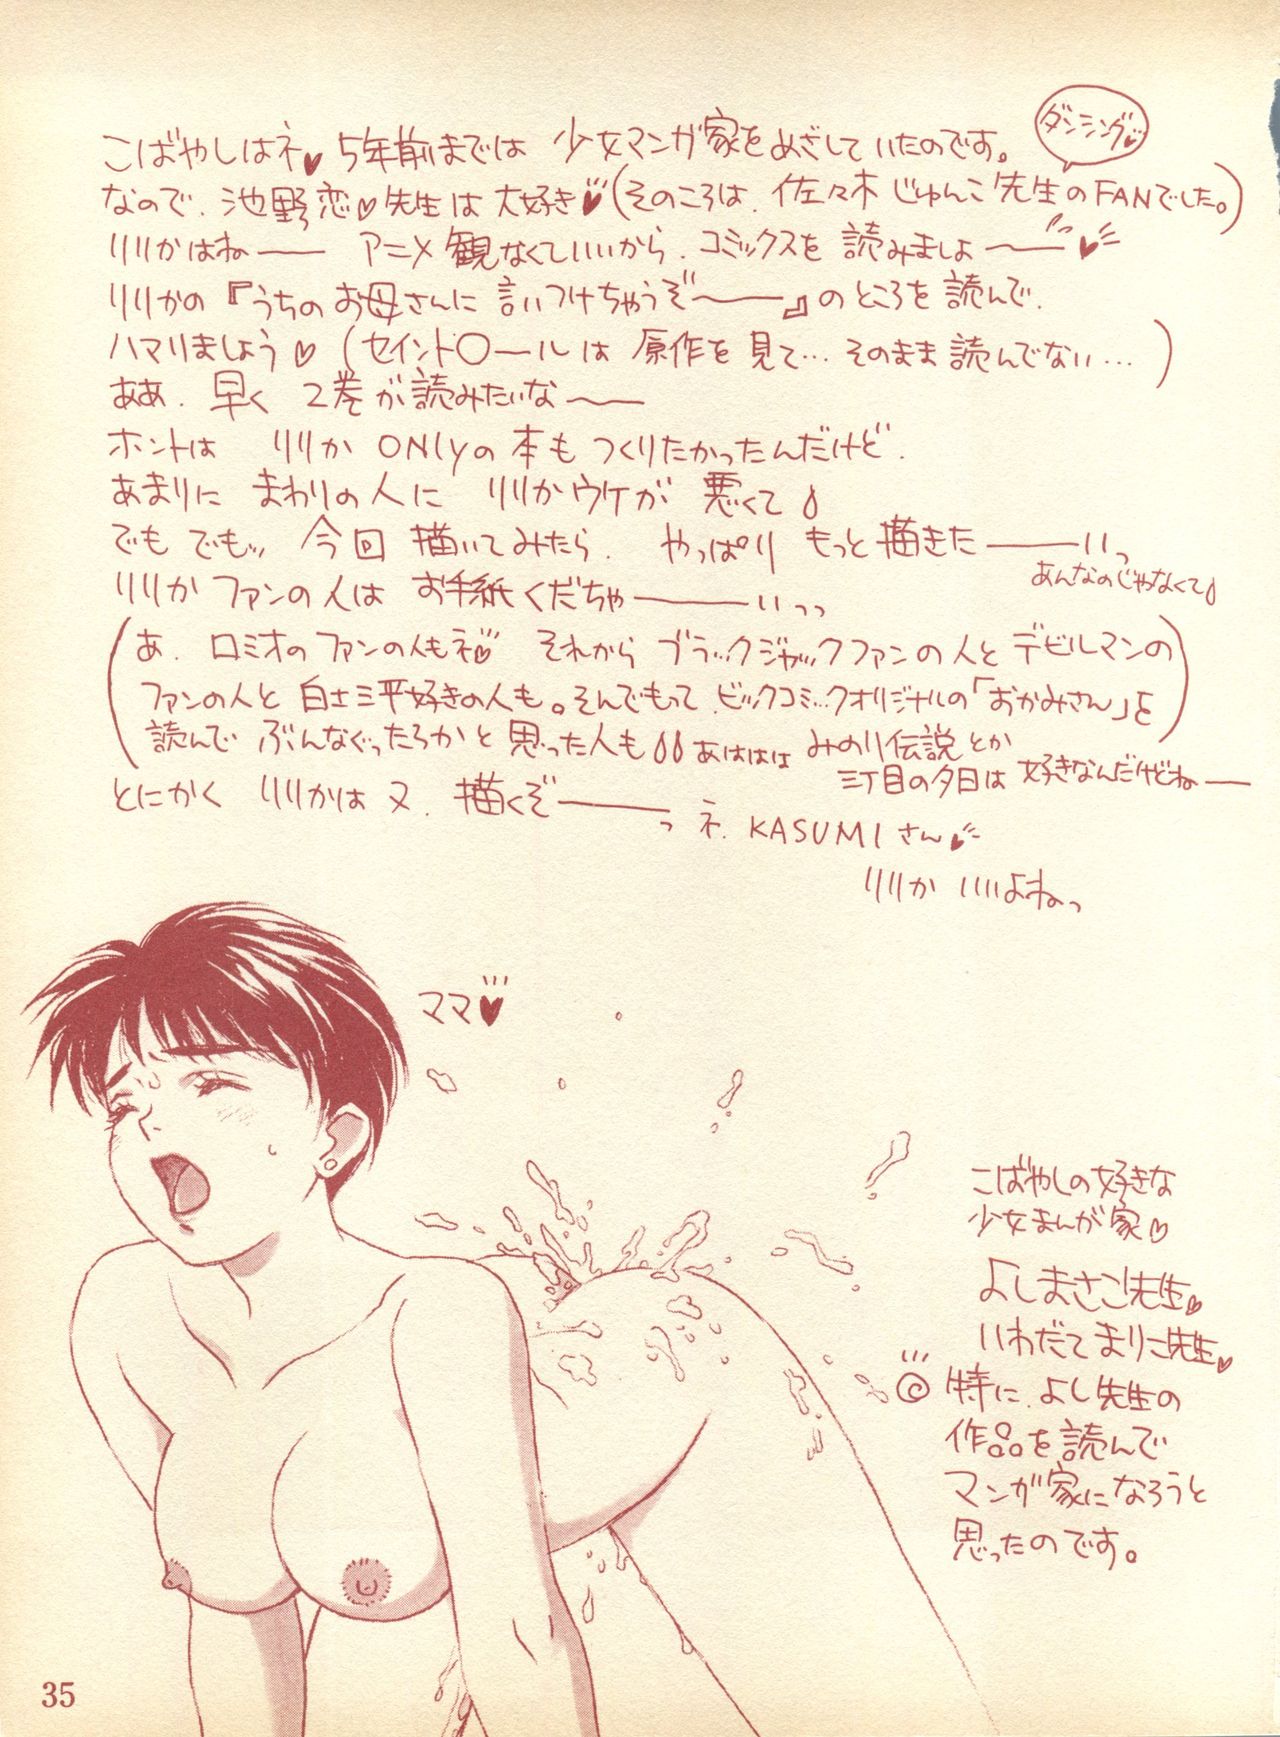 こばやしはネ♥ 5年前までは 少女マンガ家をめざしていたのです。
ダンシング♥
なので、池野恋♥先生は大好き♥(そのころは、佐々木じゅんこ先生のFANでした。)
リリかはねーー アニメ観なくていいから、コミックスを読みましょーー♥
リリかの『うちのお母さんに言いつけちゃうぞーー』のところを読んで、
ハマりましょう♡(セイント○ールは原作を見て…そのまま読んでない…)
ああ、早く2巻が読みたいなーー
ホントは リリかONlyの本もつくりたかったんだけど、
あまりに まわりの人に リリかウケが 悪くて
でも でもッ 今回 描いてみたら、やっぱり もっと描きたーーいっ
あんなのじゃなくて
リリかファンの人は お手紙くだちゃーーいっっ
(あ、ロミオのファンの人もネ♥ それから ブラックジャックファンの人と デビルマンの
ファンの人と 白士三平好きの人も。そんでもって、ビックコミックオリジナルの「おかみさん」を
読んで ぶんなぐったろかと 思った人も)あははは みのり伝説とか
三丁目の夕日は 好きなんだけどねー
とにかく リリかは又、描くぞーーっ
ネ、KASUMIさん♥
リリか いいよねっ
ママ♥
こばやしの好きな
少女まんが家♡
よしまさこ先生♡
いわだてまりこ先生♡
特に、よし先生の
作品を読んで
マンガ家になろうと
思ったのです。
35